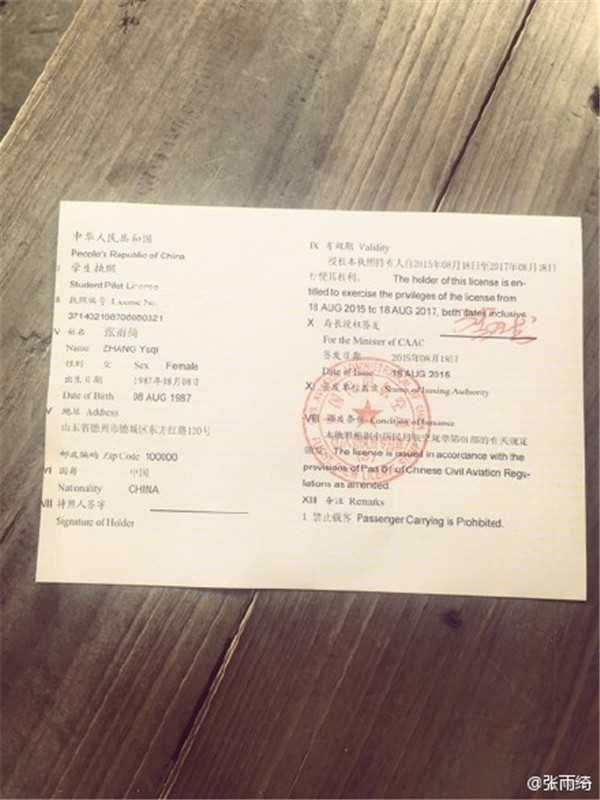 中华人民共和国
People's Republic of China
I 学生执照
Student Pilot License
II 执照编号 License No.
371402198708080321
V 姓名 张雨绮
Name ZHANG Yuqi
性别 女 Sex Female
出生日期 1987年08月08日
Date of Birth 08 AUG 1987
V 地址 Address
山东省德州市德城区东方红路120号
邮政编码 Zip Code 100000
VI 国籍 中国
Nationality CHINA
VII 持照人签字
Signature of Holder
IX 有效期 Validity
授权本执照持有人自2015年08月18日至2017年08月18日
行使其权利. The holder of this license is en-
titled to exercise the privileges of the license from
18 AUG 2015 to 18 AUG 2017, both dates inclusive.
X 局长授权签发
For the Minister of CAAC
签发日期 2015年08月18日
Date of Issue 18 AUG 2015
XI 签发单位盖章 Stamp of Issuing Authority
VIII 颁发条件 Condition of Issuance
本执照根据中国民用航空规章第61部的有关规定
颁发. The license is issued in accordance with the
provisions of Part 61 of Chinese Civil Aviation Regu-
lations as amended.
XIII 备注 Remarks
1 禁止载客 Passenger Carrying is Prohibited.
@张雨绮